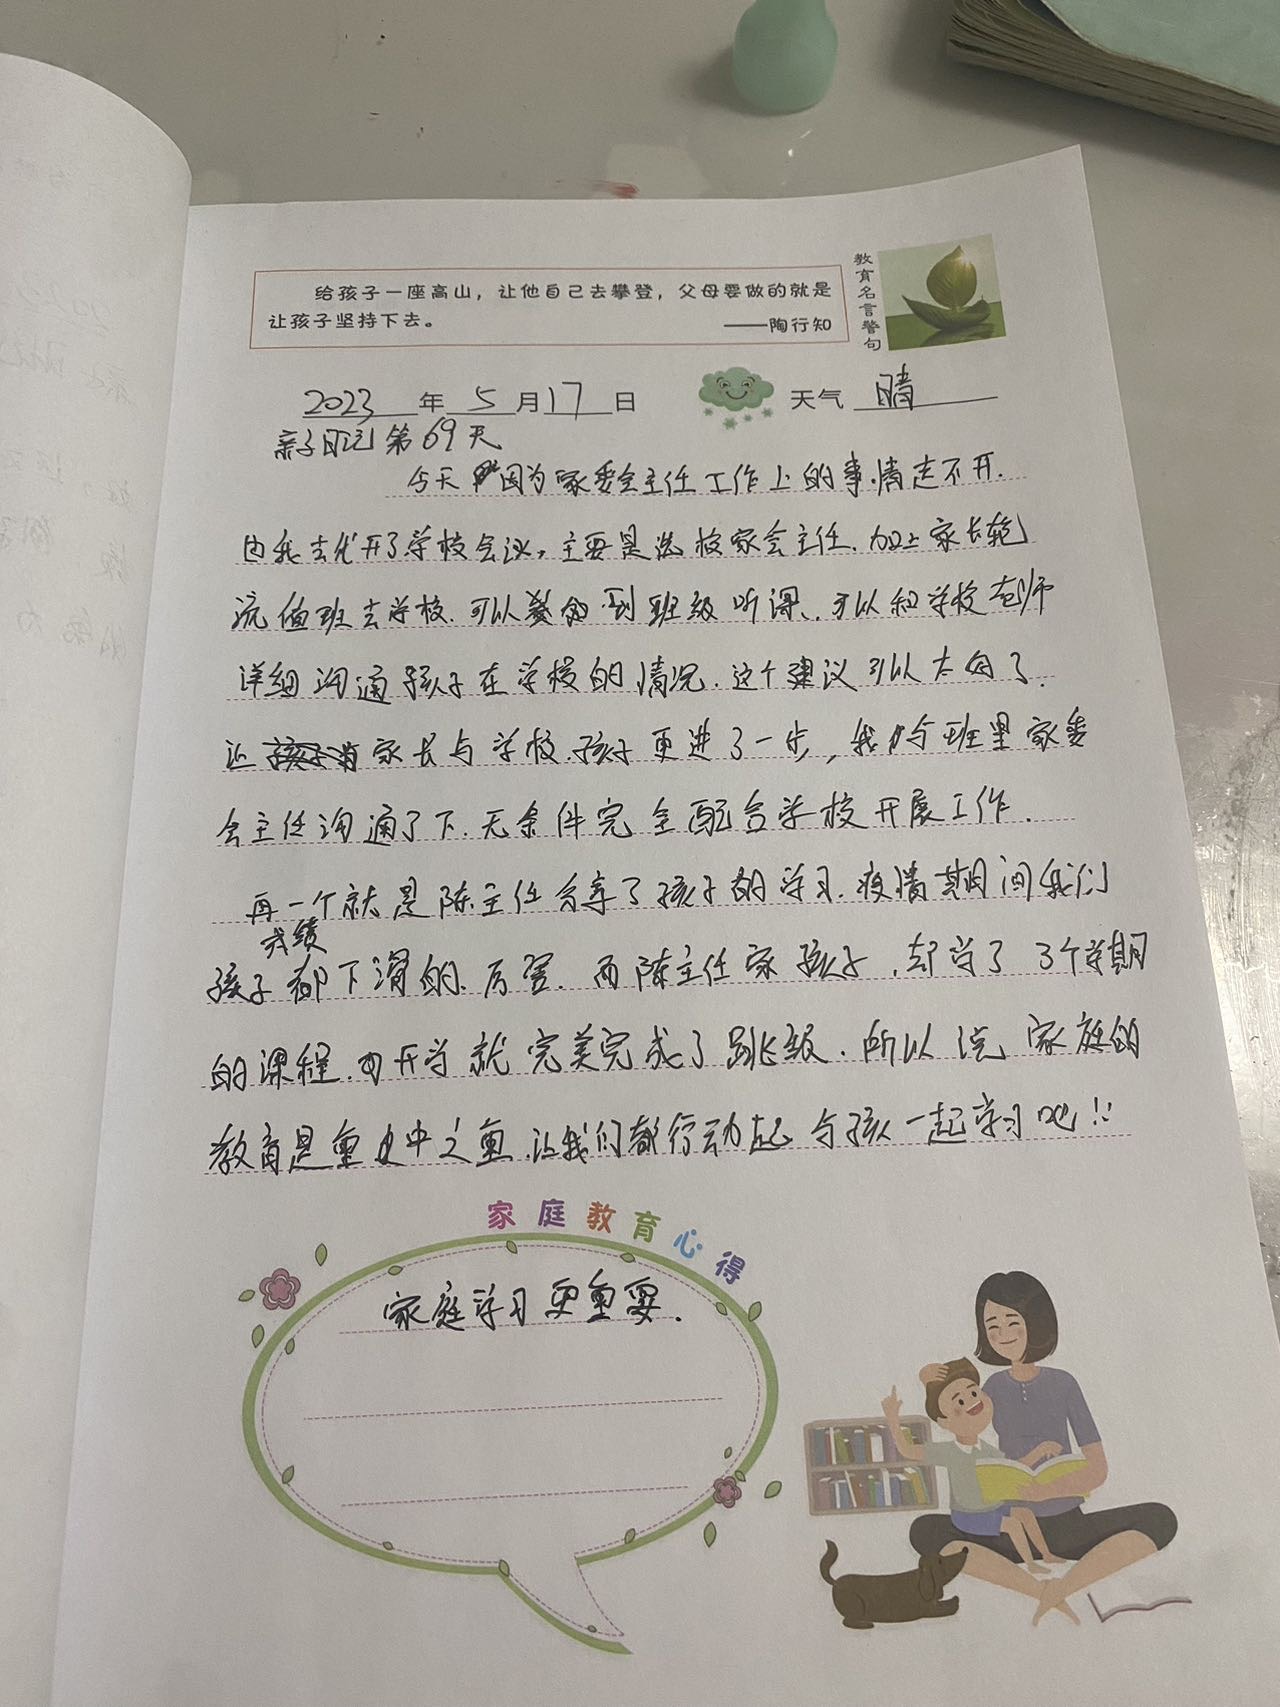 给孩子一座高山，让他自己去攀登，父母要做的就是
让孩子坚持下去。 ——陶行知
教育名言警句
2023年5月17日 天气 晴
亲子日记第69天
今天因为家委会主任工作上的事情走不开.
由我去代开了学校会议，主要是选校家会主任.加上家长轮
流值班去学校.可以到班级听课、可以和学校老师
详细沟通孩子在学校的情况.这个建议可以太好了.
让家长与学校.孩子更进了一步，我与班里家委
会主任沟通了下.无条件完全配合学校开展工作.
再一个就是陈主任分享了孩子的学习.疫情期间我们
孩子成绩都下滑的.厉害.而陈主任家孩子.却学了3个学期
的课程.开学就完美完成了跳级.所以说家庭的
教育是重中之重.让我们都行动起与孩一起学习吧!!
家庭教育心得
家庭学习更重要.